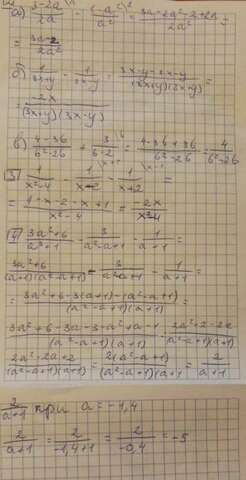 а) (3-2a)/2a - (1-a²)/a² = (3a-2a²-2+2a²)/2a² =
= (3a-2)/2a²
б) 1/(3x+y) - 1/(3x-y) = (3x-y-3x-y)/((3x+y)(3x-y)) =
= -2x/((3x+y)(3x-y))
в) (4-3b)/(b²-2b) + 3/(b-2) = (4-3b+3b)/(b²-2b) = 4/(b²-2b)
3) 1/(x²-4) - 1/(x-2) - 1/(x+2) =
= (1-x-2-x+1)/(x²-4) = -2x/(x²-4)
4) (3a²+6)/(a³+1) - 3/(a²-a+1) - 1/(a+1) =
(3a²+6)/((a+1)(a²-a+1)) - 3/(a²-a+1) - 1/(a+1) =
= (3a²+6-3(a+1)-(a²-a+1))/((a²-a+1)(a+1)) =
(3a²+6-3a-3-a²+a-1)/((a²-a+1)(a+1)) = (2a²+2-2a)/((a²-a+1)(a+1))
(2a²-2a+2)/((a²-a+1)(a+1)) = 2(a²-a+1)/((a²-a+1)(a+1)) = 2/(a+1)
2/(a+1) при a = -1,4
2/(a+1) = 2/(-1,4+1) = 2/(-0,4) = -5